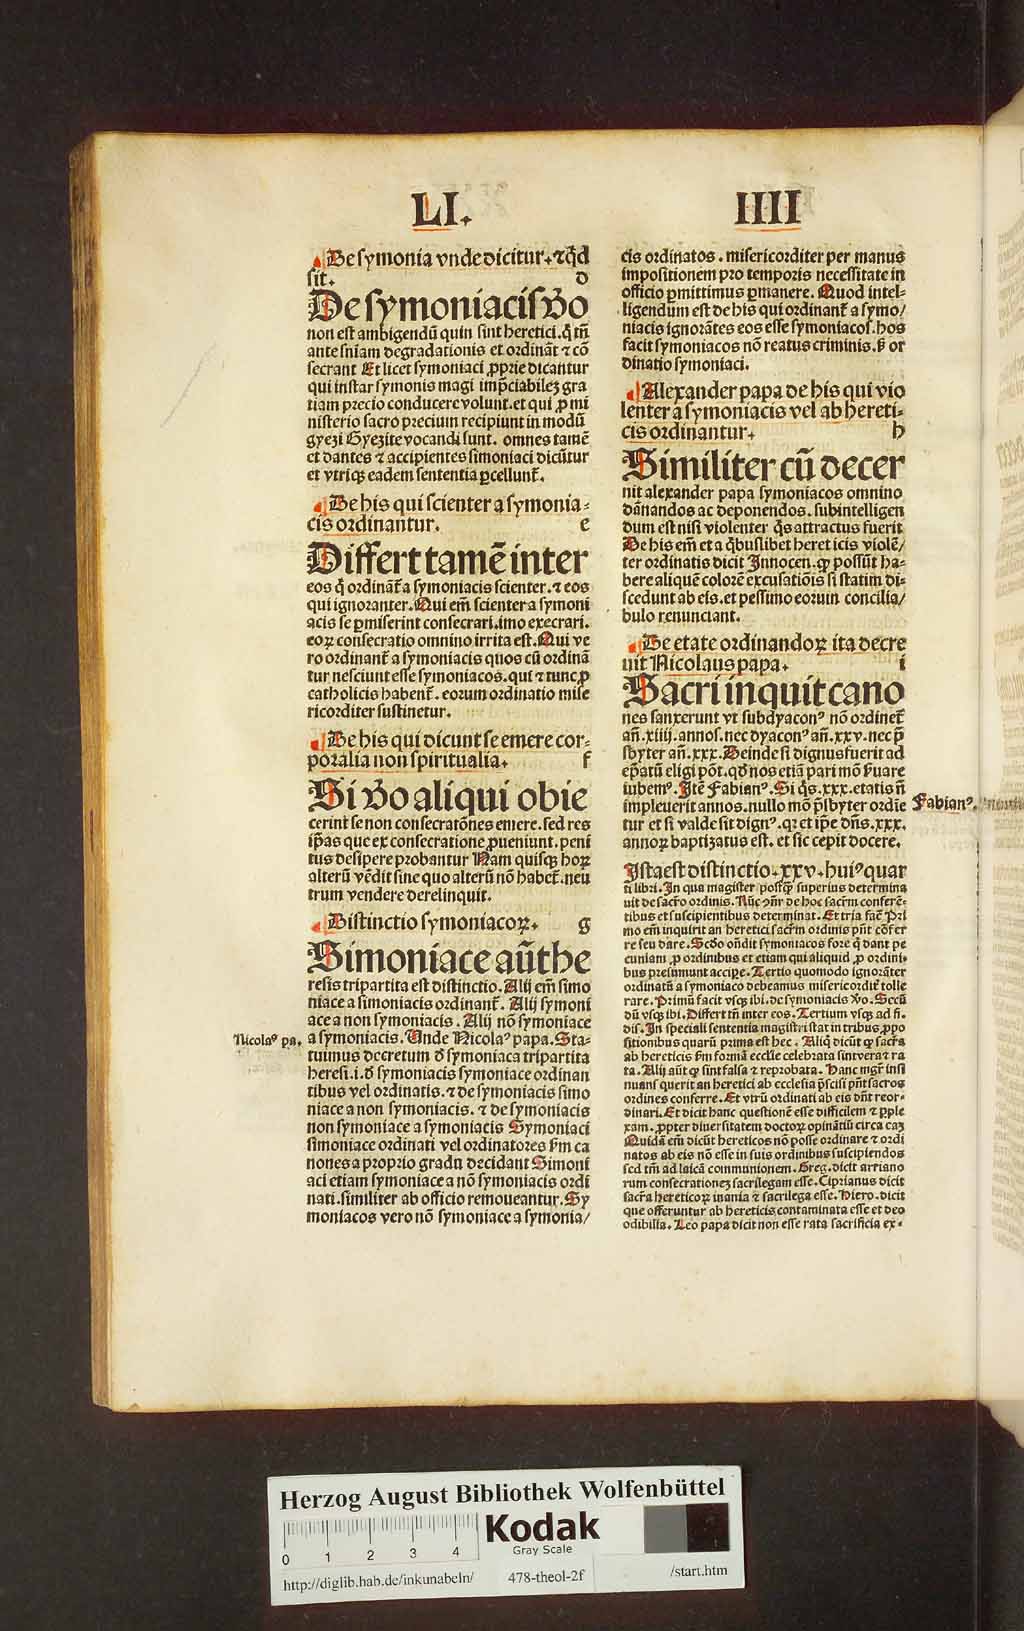 LI.
IIII
De symonia vnde dicitur. ⁊ qͥd
sit. d
De symoniacis v̓o
non est ambigendū quin sint heretici. q̇ tn̄
ante sn̄iam degradationis et ordināt ⁊ cō
secrant Et licet symoniaci ꝓprie dicantur
qui instar symonis magi imp̄ciabilez gra
tiam precio conducere volunt. et qui ꝓ mi
nisterio sacro precium recipiunt in modū
gyezi Gyezite vocandi sunt. omnes tamē
et dantes ⁊ accipientes simoniaci dicūtur
et vtriqꝫ eadem sententia ꝑcellunt̄.
De his qui scienter a symonia-
cis ordinantur. e
Differt tamē inter
eos q̇ ordinānt̄ a symoniacis scienter. ⁊ eos
qui ignoranter. Qui em̄ scienter a symoni
acis se ꝑmiserint consecrari. imo execrari.
eoꝝ consecratio omnino irrita est. Qui ve
ro ordinant̄ a symoniacis quos cū ordinā
tur nesciunt esse symoniacos. qui ⁊ tunc ꝓ
catholicis habent̄. eorum ordinatio mise
ricorditer sustinetur.
De his qui dicunt se emere cor-
poralia non spiritualia. f
Si v̓o aliqui obie
cerint se non consecratōnes emere. sed res
ip̄as que ex consecratione ꝓueniunt. peni
tus desipere probantur Nam quisqꝫ hoꝝ
alterū vēdit sine quo alterū nō habet̄. neu
trum vendere derelinquit.
Distinctio symoniacoꝝ. g
Simoniace aūt he
resis tripartita est distinctio. Alij em̄ simo
niace a simoniacis ordinant̄. Alij symoni
ace a non symoniacis. Alij nō symoniace
Nicolaꝰ pa. a symoniacis. Unde Nicolaꝰ papa. Sta-
tuimus decretum d̓ symoniaca tripartita
heresi. i. d̓ symoniacis symoniace ordinan
tibus vel ordinatis. ⁊ de symoniacis simo
niace a non symoniacis. ⁊ de symoniacis
non symoniace a symoniacis Symoniaci
simoniace ordinati vel ordinatores s̄m ca
nones a proprio gradu decidant Simoni
aci etiam symoniace a nō symoniacis ordi
nati. similiter ab officio remoueantur. Sy
moniacos vero nō symoniace a symonia/
cis ordinatos. misericorditer per manus
impositionem pro temporis necessitate in
officio ꝑmittimus ꝑmanere. Quod intel-
ligendum est de his qui ordinant̄ a symo/
niacis ignorātes eos esse symoniacos. hos
facit symoniacos nō reatus criminis. s̓ or
dinatio symoniaci.
Alexander papa de his qui vio
lenter a symoniacis vel ab hereti-
cis ordinantur. h
Similiter cū decer
nit alexander papa symoniacos omnino
dānandos ac deponendos. subintelligen
dum est nisi violenter q̇s attractus fuerit
De his em̄ et a q̇buslibet hereticis violē/
ter ordinatis dicit Innocen. ꝙ possūt ha-
bere aliquē colorē excusatiōis si statim di-
scedunt ab eis. et pessimo eorum concilia/
bulo renunciant.
De etate ordinandoꝝ ita decre
uit Nicolaus papa. i
Sacri inquit cano
nes sanxerunt vt subdyaconꝰ nō ordinet̄
an̄. xiiij. annos. nec dyaconꝰ an̄. xxv. nec p̄
sbyter an̄. xxx. Deinde si dignus fuerit ad
ep̄atū eligi pōt. qd̓ nos etiā pari mō s̓uare
iubemꝰ. Itē Fabianꝰ. Si q̇s. xxx. etatis n̄
impleuerit annos. nullo mō p̄sbyter ordīe Fabianꝰ.
tur et si valde sit dignꝰ. qꝛ et ip̄e dn̄s. xxx.
annoꝝ baptizatus est. et sic cepit docere.
Ista est distinctio. xxv. huiꝰ quar
ti libri. In qua magister postꝙ superius determina
uit de sacr̄o ordinis. Nūc ꝯn̄r de hoc sacr̄m conferē-
tibus et suscipientibus determinat. Et tria fac̄ Pri
mo em̄ inquirit an heretici sacr̄m ordinis pn̄t cōfer
re seu dare. Scd̓o on̄dit symoniacos fore q̇ dant pe
cuniam ꝓ ordinibus et etiam qui aliquid ꝓ ordini-
bus presumunt accipe. Tertio quomodo ignorāter
ordinatū a symoniaco debeamus misericordit̄ tolle
rare. Primū facit vsqꝫ ibi. de symoniacis v̓o. Secū
dū vsqꝫ ibi. Differt tn̄ inter eos. Tertium vsqꝫ ad fi.
dis. In speciali sententia magistri stat in tribus ꝓpo
sitionibus quarū prima est hec. Aliq̇ dicūt ꝙ sacr̄a
ab hereticis s̄m formā eccl̄ie celebrata sint vera ⁊ ra
ta. Alij aūt ꝙ sint falsa ⁊ reprobata. Hanc mgr̄ insi
nuans querit an heretici ab ecclesia p̄scisi pn̄t sacros
ordines conferre. Et vtrū ordinati ab eis dn̄t reor-
dinari. Et dicit hanc questionē esse difficilem ⁊ ꝑple
xam. ꝓpter diuersitatem doctoꝝ opinātiū circa eaꝫ
Quidā em̄ dicūt hereticos nō posse ordinare ⁊ ordi
natos ab eis nō esse in suis ordinibus suscipiendos
sed tm̄ ad laicā communionem. Greg. dicit arriano
rum consecrationeꝫ sacrilegam esse. Ciprianus dicit
sacr̄a hereticoꝝ inania ⁊ sacrilega esse. Hiero. dicit
que offeruntur ab hereticis contaminata esse et deo
odibilia. Leo papa dicit non esse rata sacrificia ex-
Herzog August Bibliothek Wolfenbüttel
Kodak
Gray Scale
0 1 2 3 4
http://diglib.hab.de/inkunabeln/ 478-theol-2f /start.htm